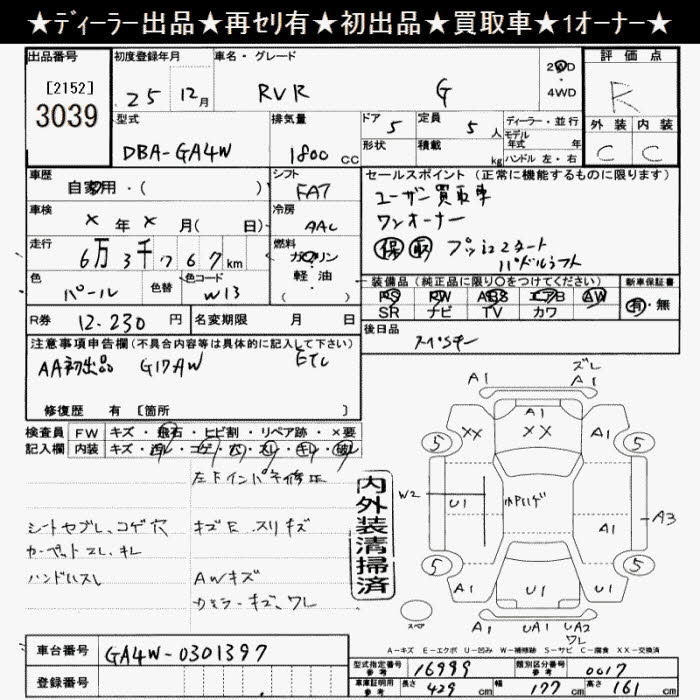 ★ディーラー出品★再セリ有★初出品★買取車★1オーナー★
出品番号 初度登録年月 車名・グレード 評価点
[2152]
3039
25 12月 RVR G 2WD・4WD R
型式 排気量 ドア 5 定員 5人 ディーラー・並行 外装 内装
DBA-GA4W 1800cc 形状 積載 kg モデル年式 年式 C C
ハンドル 左・右
車歴 シフト セールスポイント(正常に機能するものに限ります)
自家用・( ) FA7 ユーザー買取車
車検 冷房 ワンオーナー
×年×月( 日) AAC 保 取 プッシュスタート
走行 燃料 パドルシフト
6万3千767km ガソリン・軽油・( )
色 色替 色コード 装備品(純正品に限り○をつけてください) 新車保証書
パール W13 PS PW ABS エアB AW 有・無
SR ナビ TV カワ
R券 12.230円 名変期限 月 日 後日品
スペアキー
注意事項申告欄(不具合内容等は具体的に記入して下さい)
AA初出品 G17AW ETC
修復歴 有 [箇所 ]
検査員 FW キズ・飛石・ヒビ割・リペア跡・×要
記入欄 内装 キズ・汚レ・コゲ・穴・スレ・キレ・破レ
左Fインパネ修正
シートヤブレ、コゲ穴 キズE スリキズ
カーペットスレ、キレ
ハンドルスレ AWキズ
カメラーキズ、ワレ
内外装清掃済
A1 ズレ A1
A1
XX XX A1
5 5
W2 U1 A1 A3
5 5
A1 U1 A1
スペア A1 UA1 UA2
ワレ
A-キズ E-エクボ U-凹み W-補修跡 S-サビ C-腐食 XX-交換済
車台番号 GA4W-0301397
登録番号
型式指定番号 参考 16999 類別区分番号 参考 0017
車庫証明用 参考 長さ 429cm 幅 177cm 高さ 161cm